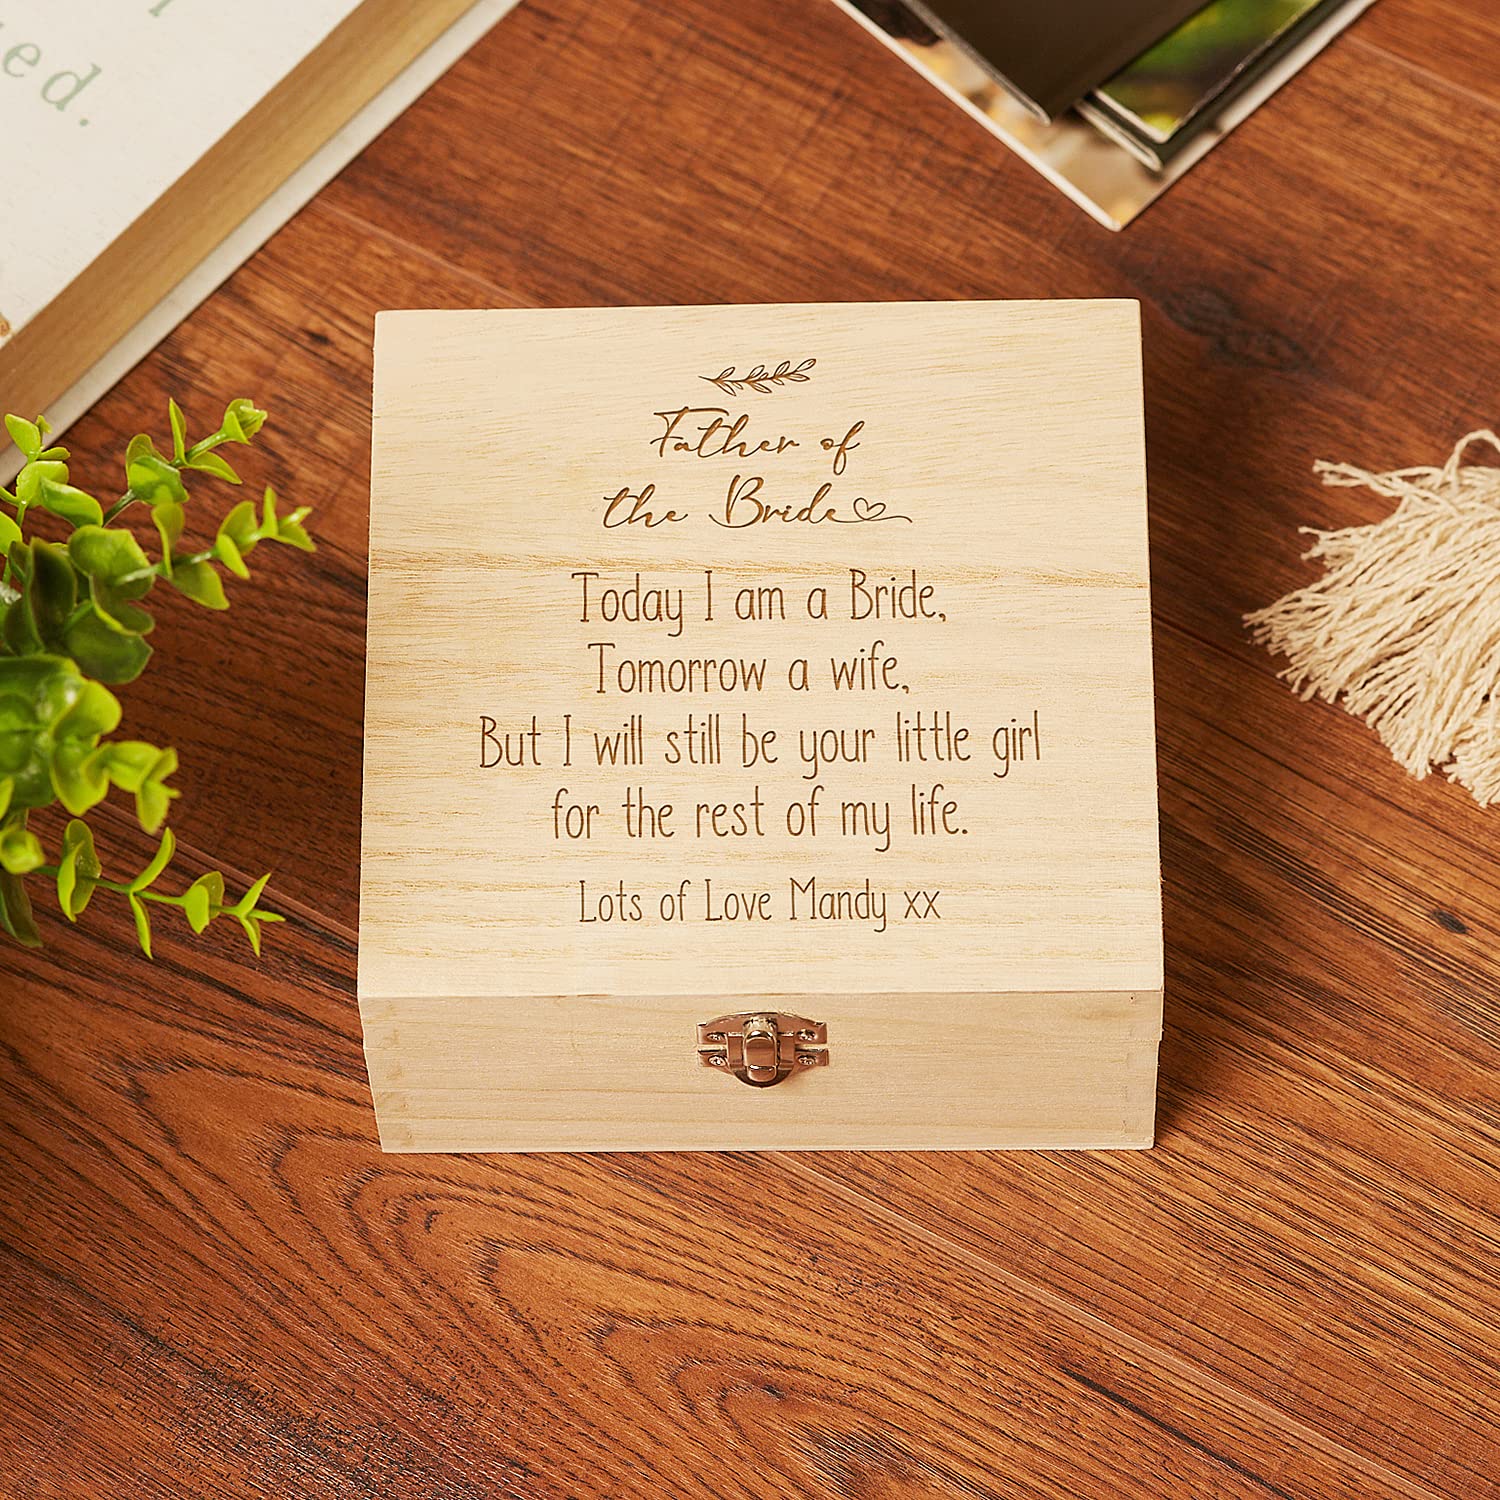 ued.
Father of
the Bride
Today I am a Bride,
Tomorrow a wife,
But I will still be your little girl
for the rest of my life.
Lots of Love Mandy xx